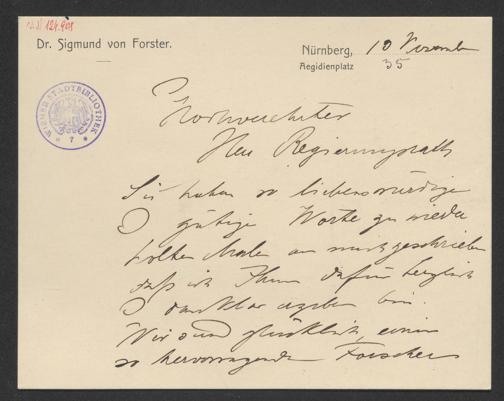 Dr. Sigmund von Forster.
Nürnberg, 10 November
Aegidienplatz 35
WIENER STADTBIBLIOTHEK
7
Hochverehrter
Herr Regierungsrath
Sie haben so liebenswürdige
& gütige Worte zu wieder
holten Malen an mich geschrieben
daß ich Ihnen dafür herzlich
& dankbar ergeben bin.
Wir sind glücklich, einen
so hervorragenden Forscher